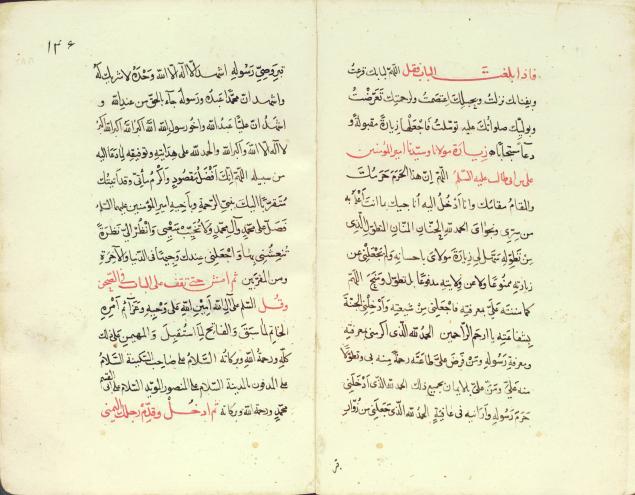 فاذا بلغت الباب فقل اللهم لبابك قرعت
وبفنائك نزلت وبحبلك اعتصمت ولرحمتك تعرضت
وبوليك صلواتك عليه توسلت فاجعلها زيارة مقبولة و
دعاء مستجابا زيارة مولانا وسيدنا امير المؤمنين
علي بن ابي طالب عليه السلم اللهم ان هذا الحرم حرمك
والمقام مقامك وانا ادخل اليه اناجيك بما انت اعلم به
من سري ونجواي الحمد لله الحنان المنان المتطول الذي
من تطوله سهل لي زيارة مولاي باحسانه ولم يجعلني عن
زيارته ممنوعا ولا عن ولايته مدفوعا بل تطول ومنح اللهم
كما مننت علي بمعرفته فاجعلني من شيعته وادخلني الجنة
بشفاعته يا ارحم الراحمين الحمد لله الذي اكرمني بمعرفته
ومعرفة رسوله ومن فرض علي طاعته رحمة منه لي وتطولا
منه علي ومن علي بالايمان بجميع ذلك الحمد لله الذي ادخلني
حرم رسوله وارانيه في عافية الحمد لله الذي جعلني من زوار
قبر
١٣٦
قبر وصي رسوله اشهد ان لا اله الا الله وحده لا شريك له
واشهد ان محمدا عبده ورسوله جاء بالحق من عند الله و
اشهد ان عليا عبد الله واخو رسول الله الله اكبر الله اكبر الله اكبر
لا اله الا الله والله اكبر والحمد لله على هدايته وتوفيقه لما دعا اليه
من سبيله اللهم انك افضل مقصود واكرم مأتي وقد اتيتك
متقربا اليك بنبيك نبي الرحمة وباخيه امير المؤمنين عليهما السلم
فصل على محمد وال محمد ولا تخيب سعيي وانظر الي نظرة
تنعشني بها واجعلني عندك وجيها في الدنيا والاخرة
ومن المقربين ثم امش حتى تقف على الباب في الصحن
وقل السلم على رسول الله امين الله على وحيه وعزائم امره
الخاتم لما سبق والفاتح لما استقبل والمهيمن على ذلك
كله ورحمة الله وبركاته السلام على صاحب السكينة السلام
على المدفون بالمدينة السلام على المنصور المؤيد السلام على ابي القسم
محمد ورحمة الله وبركاته ثم ادخل وقدم رجلك اليمنى